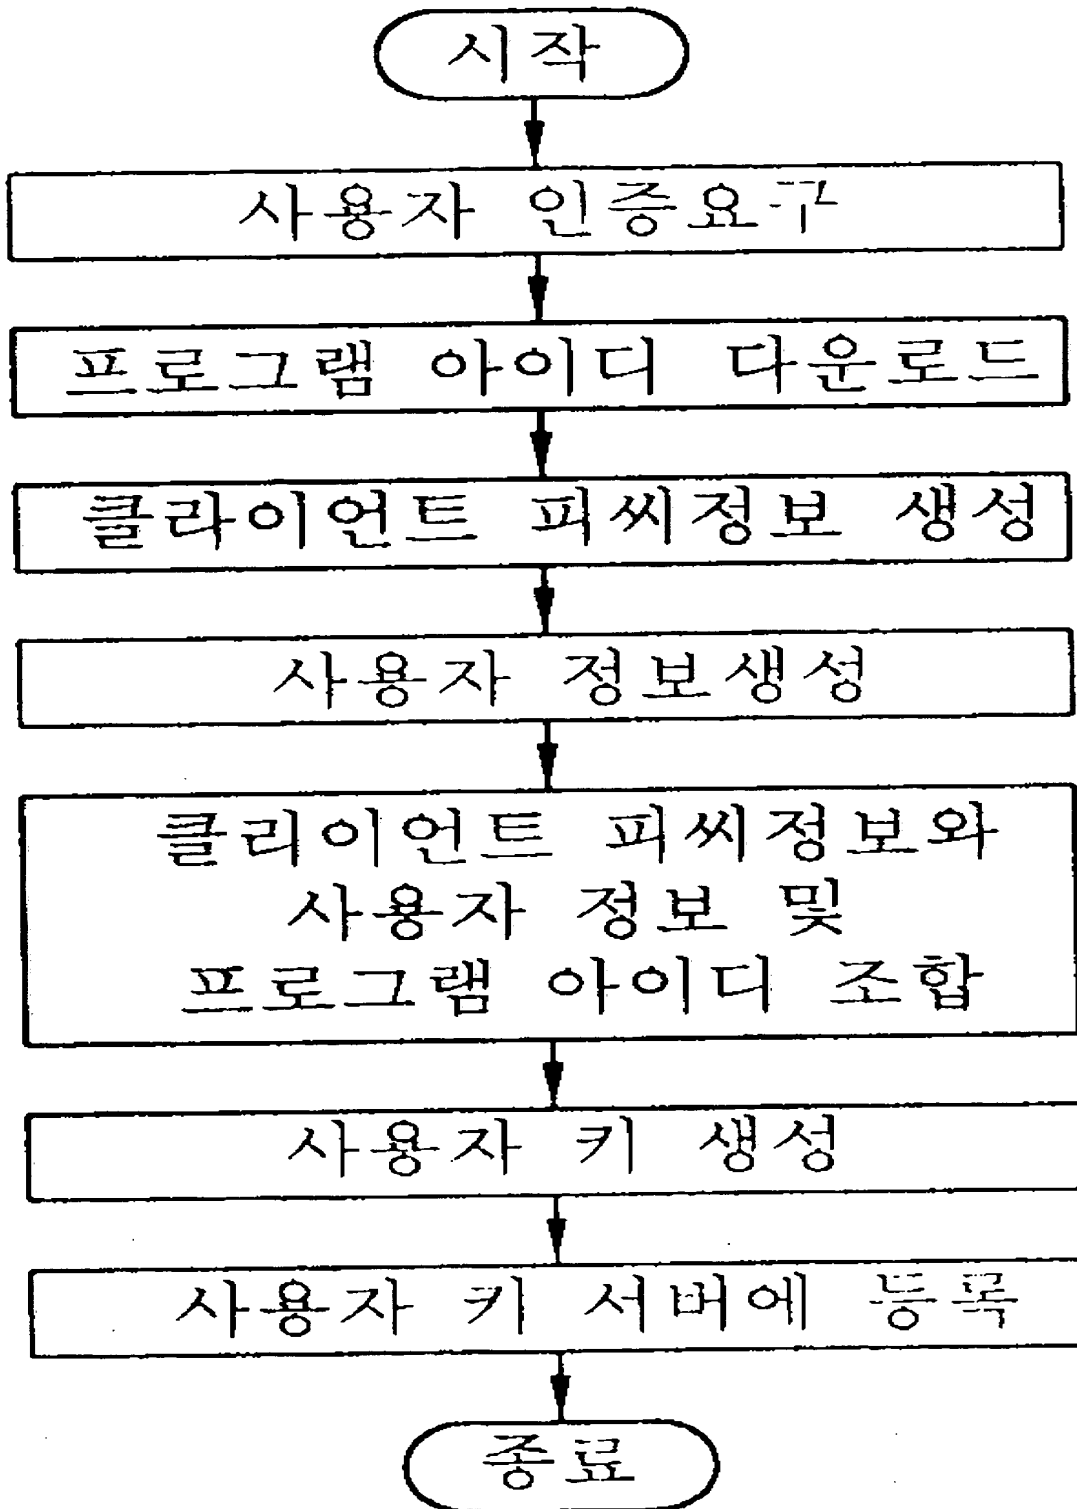 시작
사용자 인증요구
프로그램 아이디 다운로드
클라이언트 피씨정보 생성
사용자 정보생성
클리이언트 피씨정보와
사용자 정보 및
프로그램 아이디 조합
사용자 키 생성
사용자 키 서버에 등록
종료